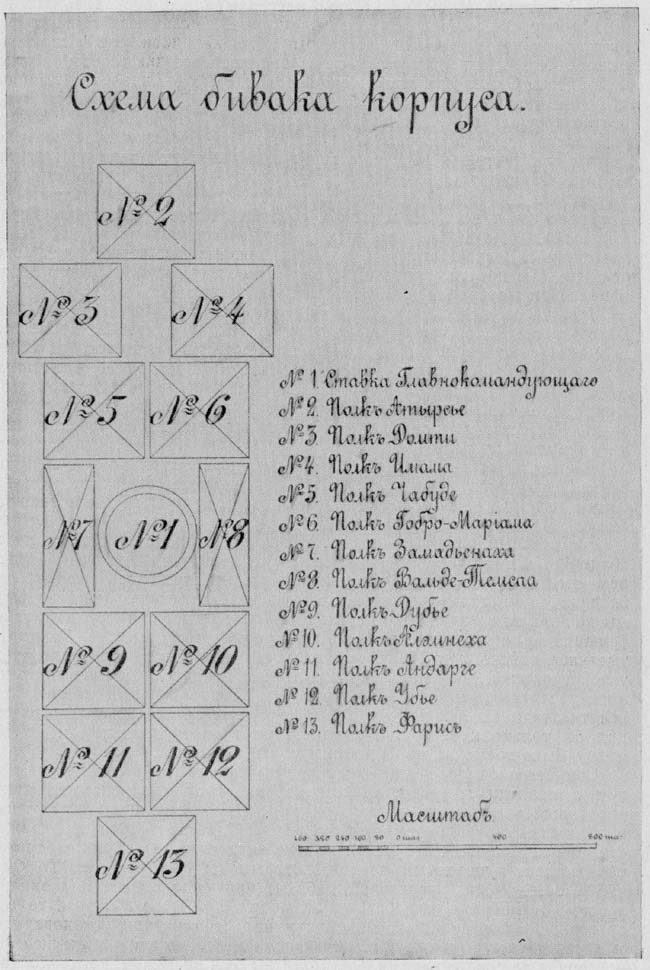 Схема бивака корпуса.
№ 2
№ 3
№ 4
№ 5
№ 6
№ 7
№ 1
№ 8
№ 9
№ 10
№ 11
№ 12
№ 13
№ 1. Ставка Главнокомандующаго
№ 2. Полкъ Атырсье
№ 3. Полкъ Домти
№ 4. Полкъ Имама
№ 5. Полкъ Чабуде
№ 6. Полкъ Гобро-Марiама
№ 7. Полкъ Замадьенаха
№ 8. Полкъ Вальде-Темсаа
№ 9. Полкъ Дубье
№ 10. Полкъ
№ 11. Полкъ Андарге
№ 12. Полкъ Убье
№ 13. Полкъ Фарисъ
Масштабъ
400 320 240 160 80 0 400 800